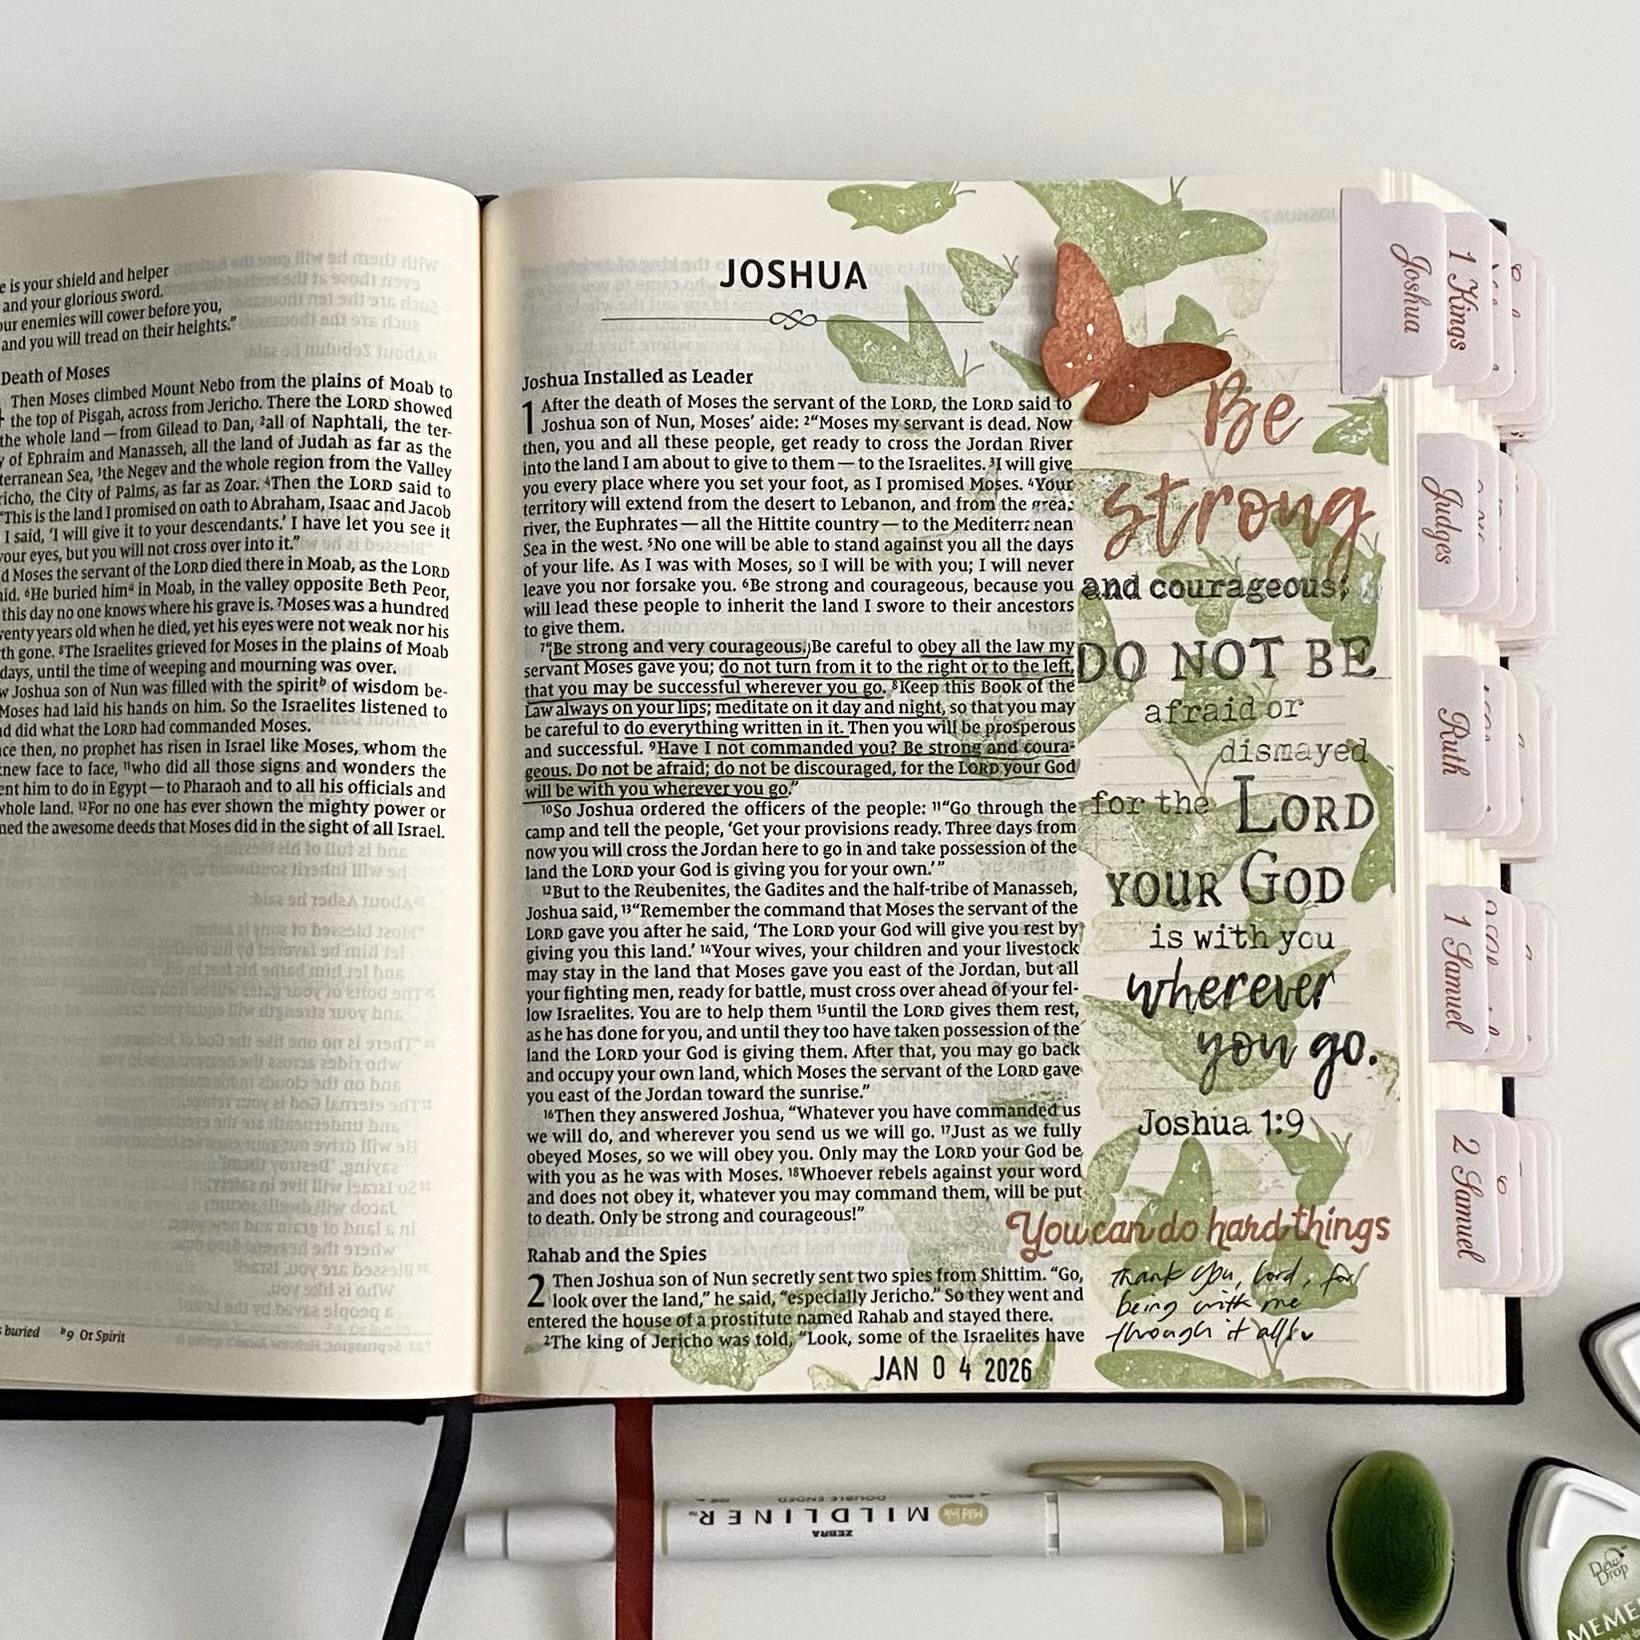 e is your shield and helper
and your glorious sword.
our enemies will cower before you,
and you will tread on their heights."
Death of Moses
Then Moses climbed Mount Nebo from the plains of Moab to
the top of Pisgah, across from Jericho. There the LORD showed
the whole land—from Gilead to Dan, ²all of Naphtali, the ter-
y of Ephraim and Manasseh, all the land of Judah as far as the
terranean Sea, ³the Negev and the whole region from the Valley
richo, the City of Palms, as far as Zoar. ⁴Then the LORD said to
"This is the land I promised on oath to Abraham, Isaac and Jacob
I said, 'I will give it to your descendants.' I have let you see it
your eyes, but you will not cross over into it."
d Moses the servant of the LORD died there in Moab, as the LORD
aid. ⁶He buried himᵃ in Moab, in the valley opposite Beth Peor,
this day no one knows where his grave is. ⁷Moses was a hundred
venty years old when he died, yet his eyes were not weak nor his
th gone. ⁸The Israelites grieved for Moses in the plains of Moab
days, until the time of weeping and mourning was over.
w Joshua son of Nun was filled with the spiritᵇ of wisdom be-
Moses had laid his hands on him. So the Israelites listened to
nd did what the LORD had commanded Moses.
ce then, no prophet has risen in Israel like Moses, whom the
knew face to face, ¹¹who did all those signs and wonders the
ent him to do in Egypt—to Pharaoh and to all his officials and
whole land. ¹²For no one has ever shown the mighty power or
med the awesome deeds that Moses did in the sight of all Israel.
s buried ᵇ9 Or Spirit
JOSHUA
Joshua Installed as Leader
1 After the death of Moses the servant of the LORD, the LORD said to
Joshua son of Nun, Moses' aide: ²"Moses my servant is dead. Now
then, you and all these people, get ready to cross the Jordan River
into the land I am about to give to them—to the Israelites. ³I will give
you every place where you set your foot, as I promised Moses. ⁴Your
territory will extend from the desert to Lebanon, and from the great
river, the Euphrates—all the Hittite country—to the Mediterranean
Sea in the west. ⁵No one will be able to stand against you all the days
of your life. As I was with Moses, so I will be with you; I will never
leave you nor forsake you. ⁶Be strong and courageous, because you
will lead these people to inherit the land I swore to their ancestors
to give them.
⁷"Be strong and very courageous. Be careful to obey all the law my
servant Moses gave you; do not turn from it to the right or to the left,
that you may be successful wherever you go. ⁸Keep this Book of the
Law always on your lips; meditate on it day and night, so that you may
be careful to do everything written in it. Then you will be prosperous
and successful. ⁹Have I not commanded you? Be strong and coura-
geous. Do not be afraid; do not be discouraged, for the LORD your God
will be with you wherever you go."
¹⁰So Joshua ordered the officers of the people: ¹¹"Go through the
camp and tell the people, 'Get your provisions ready. Three days from
now you will cross the Jordan here to go in and take possession of the
land the LORD your God is giving you for your own.'"
¹²But to the Reubenites, the Gadites and the half-tribe of Manasseh,
Joshua said, ¹³"Remember the command that Moses the servant of the
LORD gave you after he said, 'The LORD your God will give you rest by
giving you this land.' ¹⁴Your wives, your children and your livestock
may stay in the land that Moses gave you east of the Jordan, but all
your fighting men, ready for battle, must cross over ahead of your fel-
low Israelites. You are to help them ¹⁵until the LORD gives them rest,
as he has done for you, and until they too have taken possession of the
land the LORD your God is giving them. After that, you may go back
and occupy your own land, which Moses the servant of the LORD gave
you east of the Jordan toward the sunrise."
¹⁶Then they answered Joshua, "Whatever you have commanded us
we will do, and wherever you send us we will go. ¹⁷Just as we fully
obeyed Moses, so we will obey you. Only may the LORD your God be
with you as he was with Moses. ¹⁸Whoever rebels against your word
and does not obey it, whatever you may command them, will be put
to death. Only be strong and courageous!"
Rahab and the Spies
2 Then Joshua son of Nun secretly sent two spies from Shittim. "Go,
look over the land," he said, "especially Jericho." So they went and
entered the house of a prostitute named Rahab and stayed there.
²The king of Jericho was told, "Look, some of the Israelites have
JAN 0 4 2026
Be
strong
and courageous;
DO NOT BE
afraid or
dismayed
for the LORD
YOUR GOD
is with you
wherever
you go.
Joshua 1:9
You can do hard things
Thank You, Lord, for
being with me
through it all!
Joshua
1 Kings
Judges
Ruth
1 Samuel
2 Samuel
ZEBRA
MILDLINER™
DOUBLE ENDED
Mild Ink
Dew
Drop
MEME